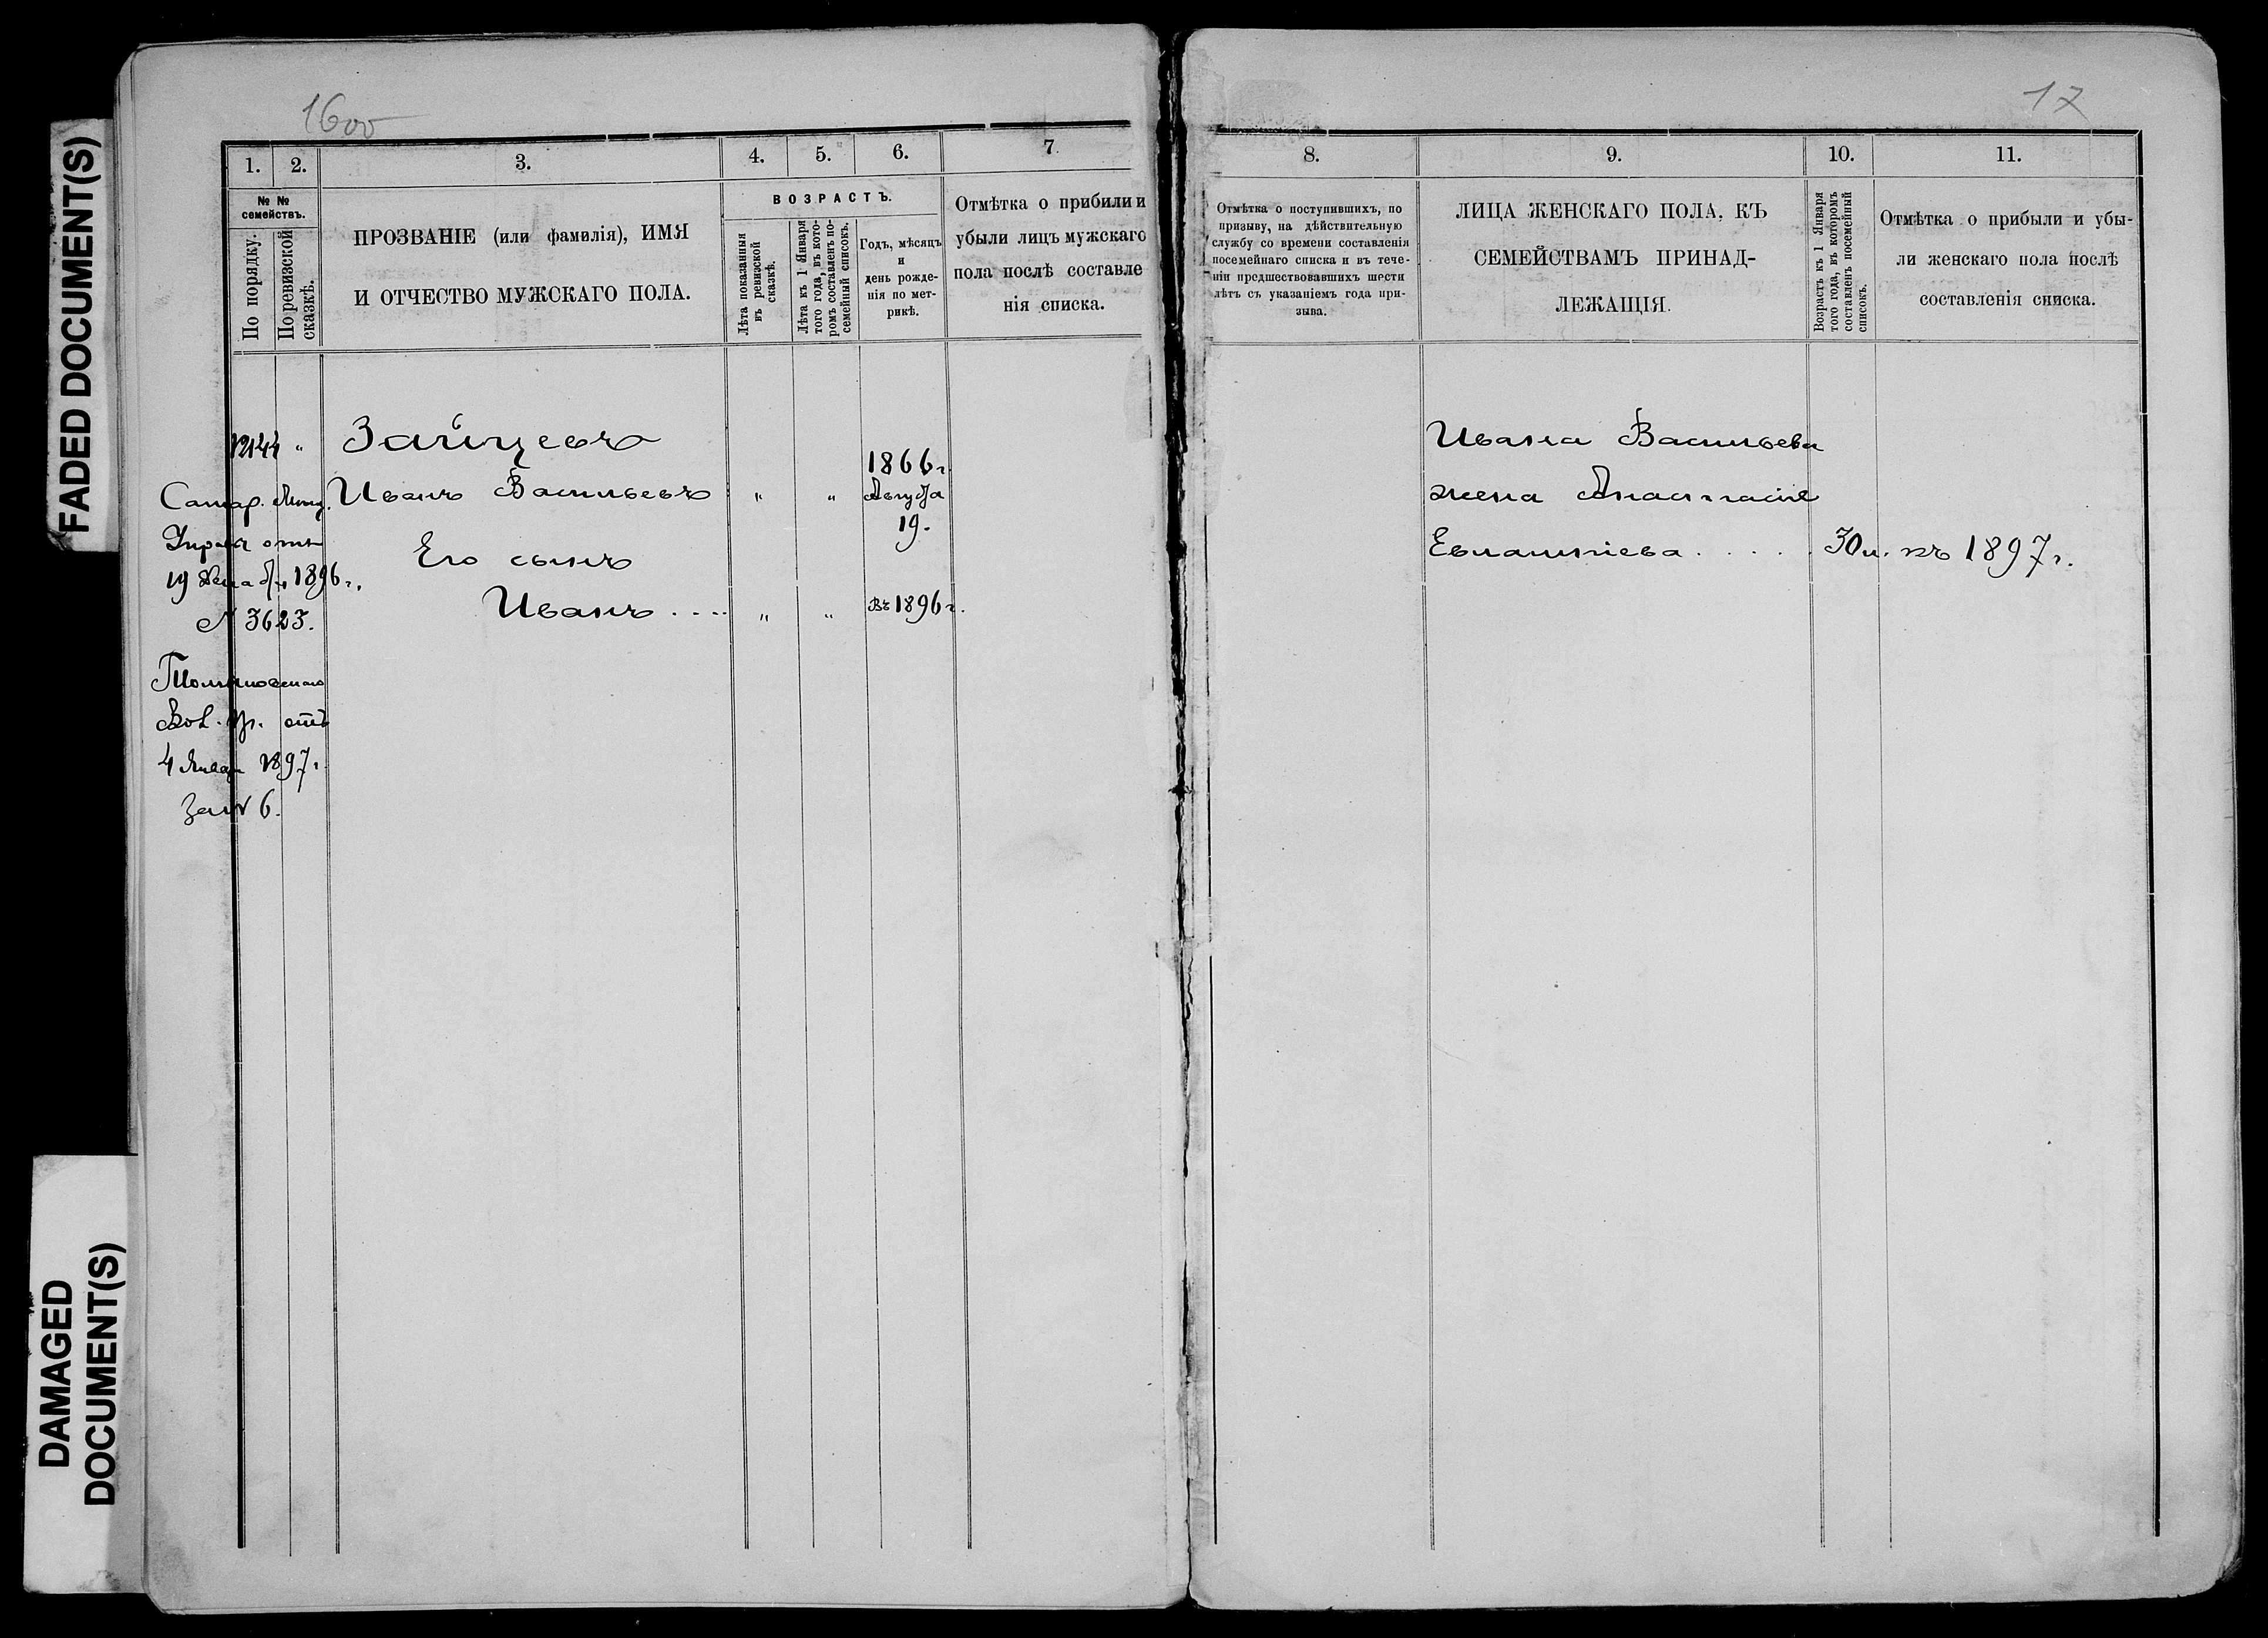 FADED DOCUMENT(S)
DAMAGED
DOCUMENT(S)
1600
1.
2.
3.
4.
5.
6.
7
№ №
семействъ.
По порядку.
По ревизской
сказкѣ.
ПРОЗВАНІЕ (или фамилія), ИМЯ
И ОТЧЕСТВО МУЖСКАГО ПОЛА.
ВОЗРАСТЪ.
Лѣта показанныя
въ ревизской
сказкѣ.
Лѣта къ 1 Января
того года, въ кото-
ромъ составленъ по-
семейный списокъ.
Годъ, мѣсяцъ
и
день рожде-
нія по мет-
рикѣ.
Отмѣтка о прибили и
убыли лицъ мужскаго
пола послѣ составле
нія списка.
1244 "
Самар. Мѣщ.
Управ. отъ
19 1896 г.
№ 3623.
Вол. пр. отъ
4 Январ 1897 г.
за № 6.
Зайцевъ
Иванъ Васильевъ " "
1866 г.
Августа
19.
Его сынъ
Иванъ .... " " Въ 1896 г.
17
8.
9.
10.
11.
Отмѣтка о поступившихъ, по
призыву, на дѣйствительную
службу со времени составленія
посемейнаго списка и въ тече-
ніи предшествовавшихъ шести
лѣтъ съ указаніемъ года при-
зыва.
ЛИЦА ЖЕНСКАГО ПОЛА, КЪ
СЕМЕЙСТВАМЪ ПРИНАД-
ЛЕЖАЩІЯ.
Возрастъ къ 1 Января
того года, въ которомъ
составленъ посемейный
списокъ.
Отмѣтка о прибыли и убы-
ли женскаго пола послѣ
составленія списка.
Ивана Васильева
жена Анастасія
Евлампіева ..... 30 л. къ 1897 г.